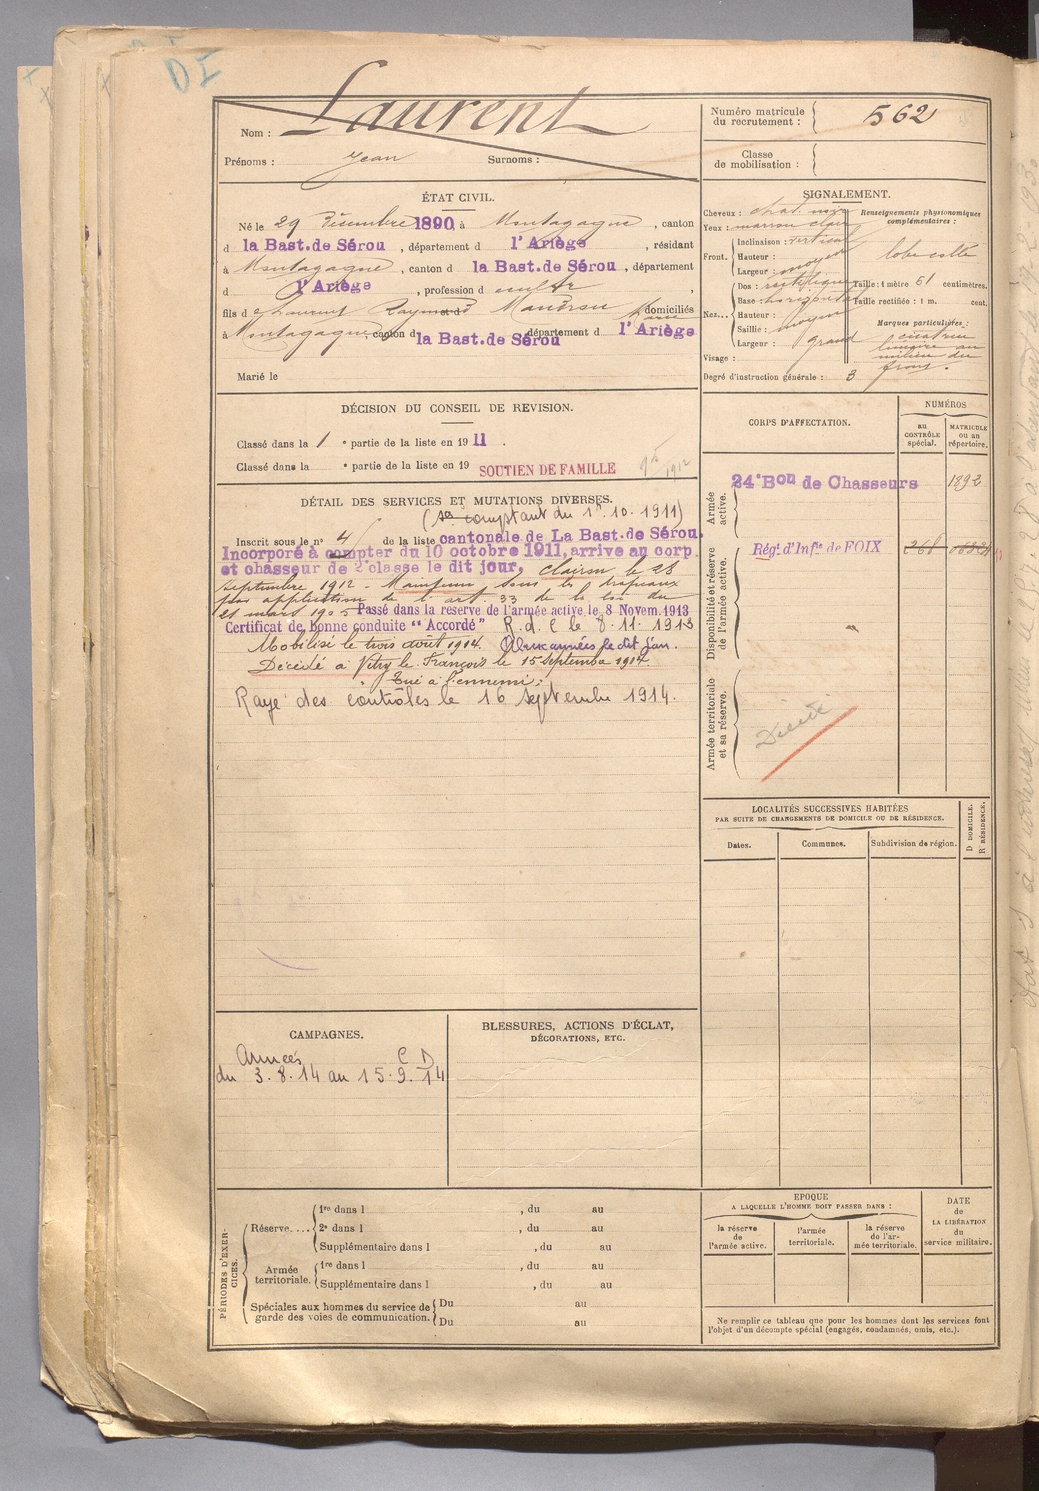 DI
Nom : Laurent
Prénoms : Jean Surnoms :
Numéro matricule du recrutement : 562
Classe de mobilisation :
ÉTAT CIVIL.
Né le 29 Décembre 1890, à Montagagne, canton
d la Bast.de Sérou, département d l'Ariège, résidant
à Montagagne, canton d la Bast.de Sérou, département
d l'Ariège, profession d cultr,
fils de Laurent Raymond Marie domiciliés
à Montagagne, canton d la Bast.de Sérou département d l'Ariège
Marié le
SIGNALEMENT.
Cheveux : chat. noir
Yeux : marron clair
Front. Inclinaison : vertical
Hauteur : moyen
Largeur : moyen
Nez... Dos : rectiligne
Base : horizontal
Hauteur :
Saillie : moyen
Largeur : grand
Visage :
Renseignements physionomiques complémentaires :
lobe collé
Taille : 1 mètre 61 centimètres.
Taille rectifiée : 1 m. cent.
Marques particulières :
cicatrice
linéaire au
milieu du
front.
Degré d'instruction générale : 3
DÉCISION DU CONSEIL DE REVISION.
Classé dans la 1 e partie de la liste en 1911.
Classé dans la e partie de la liste en 19 SOUTIEN DE FAMILLE 1912
DÉTAIL DES SERVICES ET MUTATIONS DIVERSES.
(à comptant du 1r. 10. 1911)
Inscrit sous le n° 4 de la liste cantonale de La Bast.de Sérou.
Incorporé à compter du 10 octobre 1911, arrive au corp
et chasseur de 2e classe le dit jour, clairon le 28
septembre 1912 - Maintenu sous les drapeaux
par application de l'art. 33 de la loi du
21 mars 1905 Passé dans la reserve de l'armée active, le 8 Novem. 1913
Certificat de bonne conduite "Accordé" R. d. C le 8. 11. 1913
Mobilisé le trois août 1914. Aux armées le dit jour.
Décédé à Vitry le François le 15 septembre 1914.
Tué à l'ennemi.
Rayé des contrôles le 16 Septembre 1914.
CORPS D'AFFECTATION.
NUMÉROS
AU CONTRÔLE SPÉCIAL.
MATRICULE OU AU répertoire.
Armée active.
24e Bon de Chasseurs 1892
Disponibilité et réserve de l'armée active.
Régt d'Infie de FOIX 268
Armée territoriale et sa réserve.
LOCALITÉS SUCCESSIVES HABITÉES
PAR SUITE DE CHANGEMENTS DE DOMICILE OU DE RÉSIDENCE.
Dates. Communes. Subdivision de région. D DOMICILE. R RÉSIDENCE.
CAMPAGNES.
Armées C D
du 3. 8. 14 au 15. 9. 14
BLESSURES, ACTIONS D'ÉCLAT,
DÉCORATIONS, ETC.
PÉRIODES D'EXERCICES.
Réserve.... 1re dans l , du au
2e dans l , du au
Supplémentaire dans l , du au
Armée territoriale. 1re dans l , du au
Supplémentaire dans l , du au
Spéciales aux hommes du service de garde des voies de communication. Du au
Du au
EPOQUE
A LAQUELLE L'HOMME DOIT PASSER DANS :
la réserve de l'armée active.
l'armée territoriale.
la réserve de l'armée territoriale.
DATE de LA LIBÉRATION du service militaire.
Ne remplir ce tableau que pour les hommes dont les services font
l'objet d'un décompte spécial (engagés, condamnés, omis, etc.).